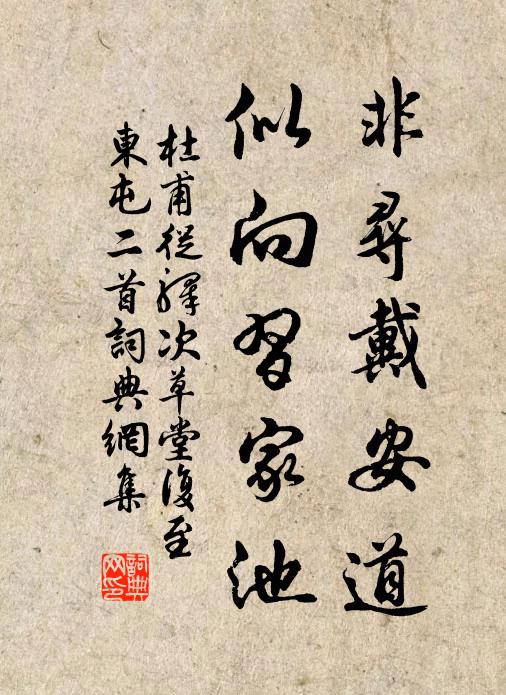 非尋戴安道
似向習家池
杜甫從驛次草堂復至
東屯二首詞典網集
詞典
网印